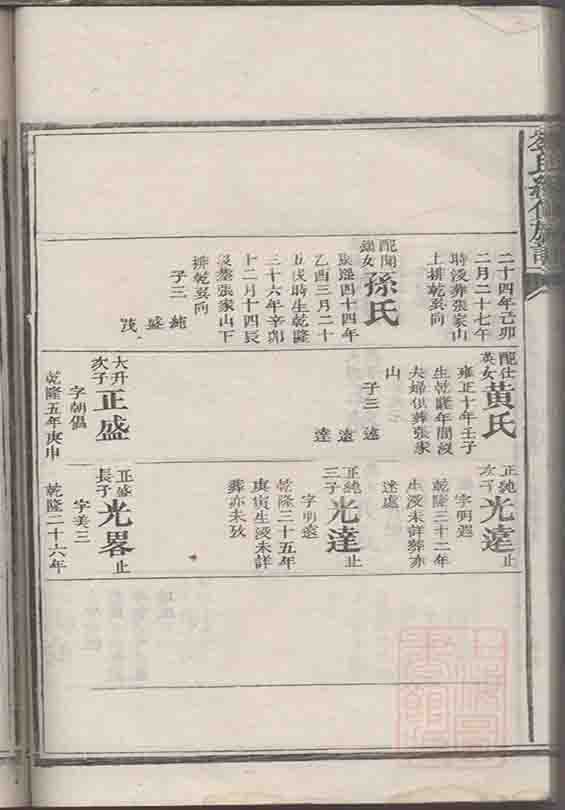 二十四年己卯
二月二十七午
時歿葬張家山
土排乾巽向
配開
女
孫氏
康熙四十四年
乙酉三月二十
五戌時生乾隆
三十六年辛卯
十二月十四辰
歿葬張家山下
排乾巽向
子三
純
盛
茂
配仕
英女
黃氏
雍正十年壬子
生乾隆年間歿
夫婦俱葬張家
山
子三
遠
達
大升
次子
正盛
字朝
乾隆五年庚申
正純
次子
光遠
止
字明遐
乾隆三十二年
生歿未詳葬亦
迷處
正純
三子
光達
止
字明遠
乾隆三十五年
庚寅生歿未詳
葬亦未攷
正盛
長子
光畧
止
字美三
乾隆二十六年